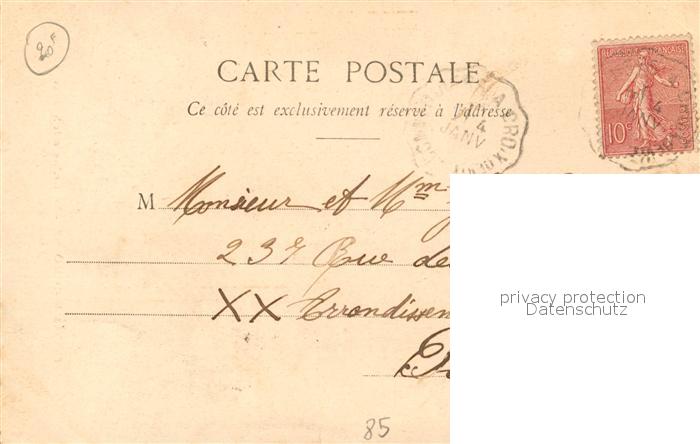 20F
CARTE POSTALE
Ce côté est exclusivement réservé à l'adresse
RÉPUBLIQUE FRANÇAISE
10c
LA CROIX
4
JANV
M Monsieur et Mm
237 Rue de
XX Arrondissem
privacy protection
Datenschutz
85